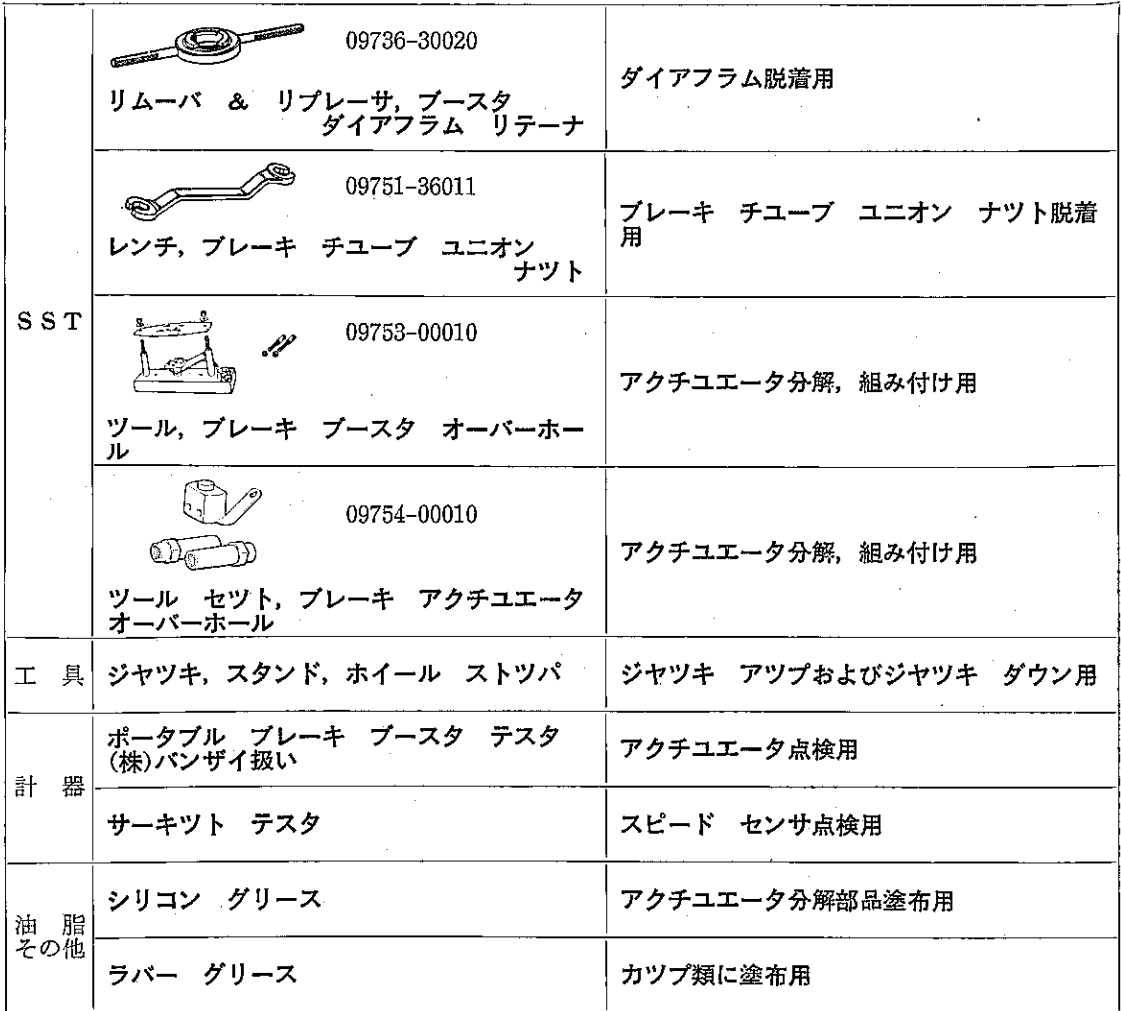 09736-30020
リムーバ & リプレーサ, ブースタ
ダイアフラム リテーナ
ダイアフラム脱着用
09751-36011
レンチ, ブレーキ チユーブ ユニオン
ナツト
ブレーキ チユーブ ユニオン ナツト脱着
用
SST
09753-00010
ツール, ブレーキ ブースタ オーバーホー
ル
アクチユエータ分解, 組み付け用
09754-00010
ツール セツト, ブレーキ アクチユエータ
オーバーホール
アクチユエータ分解, 組み付け用
工 具
ジヤツキ, スタンド, ホイール ストツパ
ジヤツキ アツプおよびジヤツキ ダウン用
計 器
ポータブル ブレーキ ブースタ テスタ
(株)バンザイ扱い
アクチユエータ点検用
サーキツト テスタ
スピード センサ点検用
油 脂
その他
シリコン グリース
アクチユエータ分解部品塗布用
ラバー グリース
カツプ類に塗布用